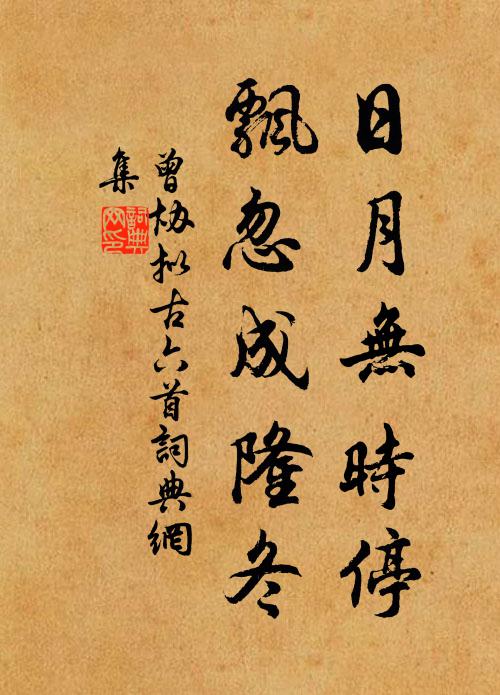 日月無時停
飄忽成隆冬
曾協拟古六首詞典網
集
詞典網印